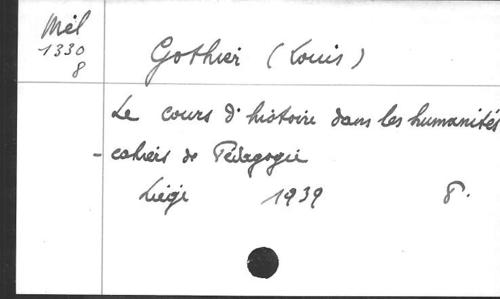 Mél
1330
8
Gothier (Louis)
Le cours d'histoire dans les humanités
- cahiers de Pédagogie
Liége 1939 8.